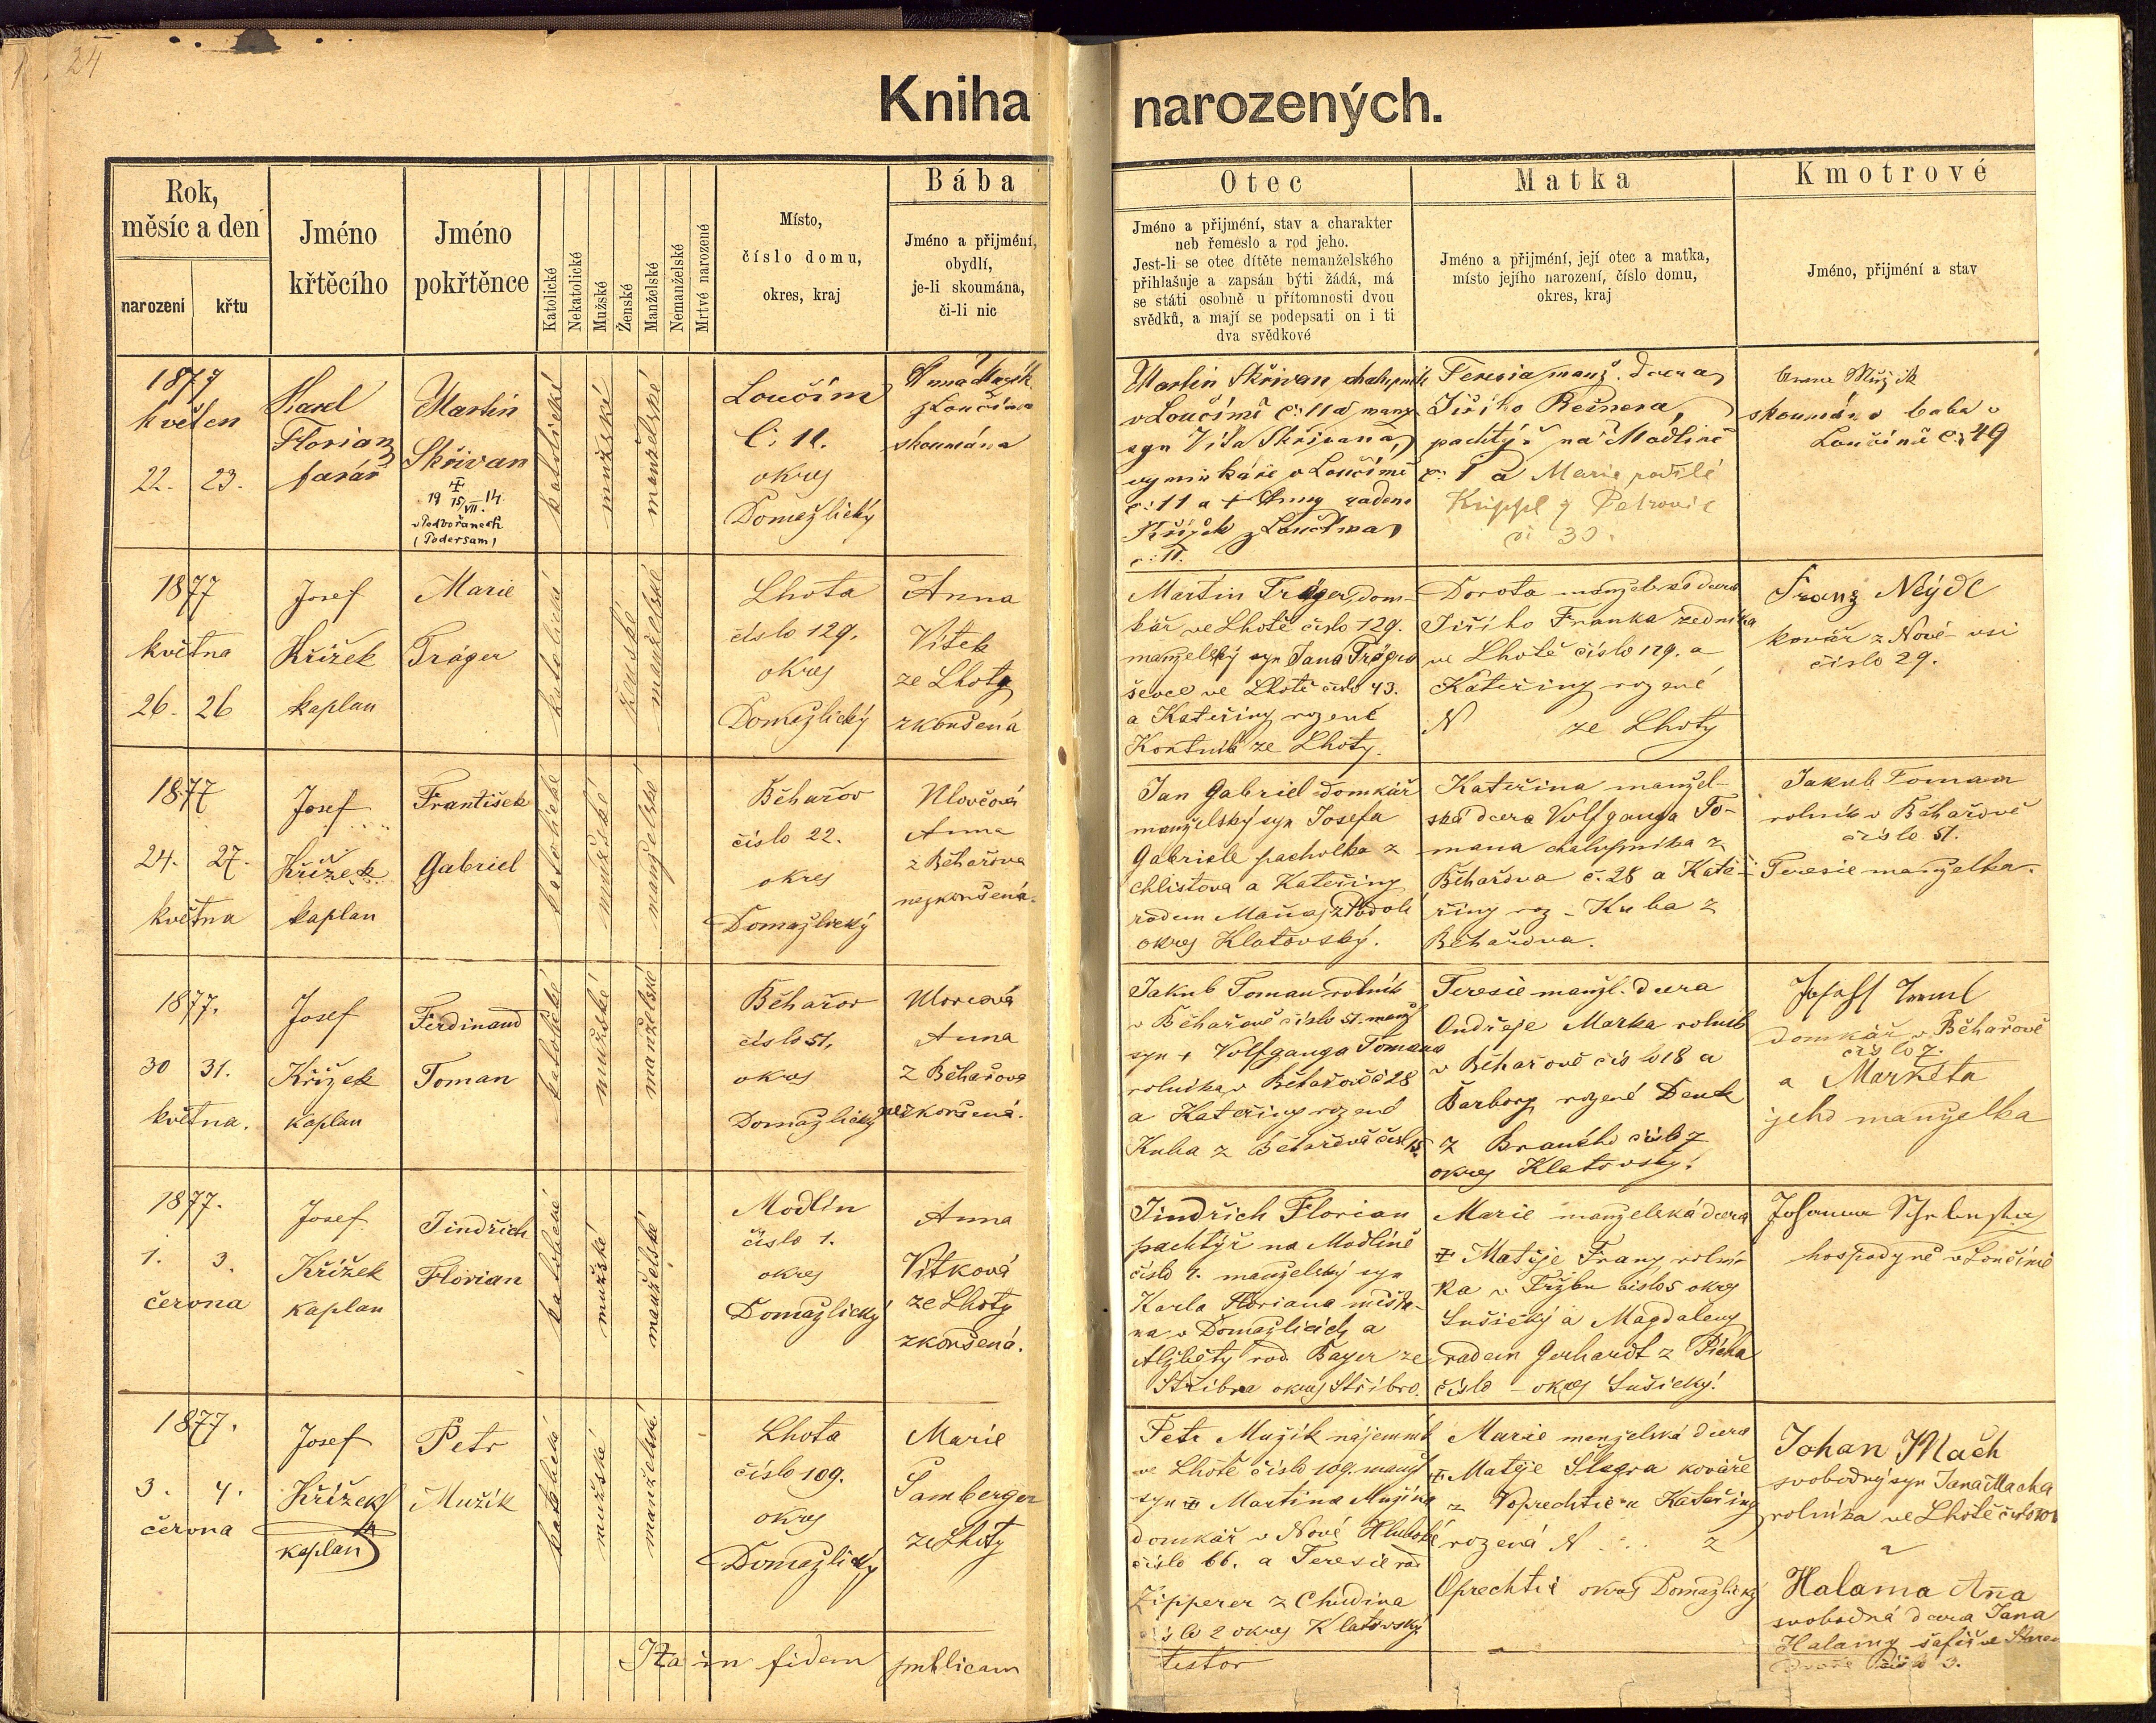 24
Kniha narozených.
Rok,
měsíc a den
narození
křtu
Jméno
křtěcího
Jméno
pokřtěnce
Katolické
Nekatolické
Mužské
Ženské
Manželské
Nemanželské
Mrtvé narozené
Místo,
číslo domu,
okres, kraj
Bába
Jméno a přijmění,
obydlí,
je-li skoumána,
či-li nic
Otec
Jméno a přijmění, stav a charakter
neb řemeslo a rod jeho.
Jest-li se otec dítěte nemanželského
přihlašuje a zapsán býti žádá, má
se státi osobně u přítomnosti dvou
svědků, a mají se podepsati on i ti
dva svědkové
Matka
Jméno a přijmění, její otec a matka,
místo jejího narození, číslo domu,
okres, kraj
Kmotrové
Jméno, přijmění a stav
1877
květen
22. 23.
Karel
Florian
farář
Martin
Skřivan
19 15/VII. 14
v Podbořanech
(Podersam)
katolické
mužské
manželské
Loučim
č: 11.
okres
Domažlický
Anna
z Loučima
skoumána
Martin Skřivan chalupník
v Loučimě č: 11 a manž
syn Víta Skřivana,
vyminkáře v Loučimě
č: 11 a + Anny rodem
Křížek z Loučima
č: 11.
Teresia manž. dcera
Jiřího Rešnera,
pachtýř na Modlině
č: 1 a Marie
Krippl z Petrovic
či 30.
Anna Mužik
skoumána baba v
Loučimě č: 49
1877
května
26. 26
Josef
Křížek
kaplan
Marie
Träger
katolické
ženské
manželské
Lhota
číslo 129.
okres
Domažlický
Anna
Vítek
ze Lhoty
zkoušená
Martin Träger, dom-
kář ve Lhotě číslo 129.
manželský syn Jana Trägra
ševce ve Lhotě číslo 43.
a Kateřiny rozené
ze Lhoty.
Dorota manželská dcera
Jiřího Franka zedníka
ve Lhotě číslo 129. a
Kateřiny rozené
N ze Lhoty
Franz Neydl
kovář z Nové-vsi
číslo 29.
1877
24. 27.
května
Josef
Křížek
kaplan
František
Gabriel
katolické
mužské
manželské
Běhařov
číslo 22.
okres
Domažlický
Anna
z Běhařova
nezkoušená.
Jan Gabriel domkář
manželský syn Josefa
Gabriele pacholka z
Chlistova a Kateřiny
rodem
okres Klatovský.
Kateřina manžel-
ská dcera Volfganga To-
mana chalupníka z
Běhařova č. 28 a Kate-
řiny roz - Kuba z
Běhařova.
Jakub Toman
rolník v Běhařově
číslo 51.
Teresie manželka.
1877.
30 31.
května.
Josef
Křížek
kaplan
Ferdinand
Toman
katolické
mužské
manželské
Běhařov
číslo 51,
okres
Domažlický
Anna
z Běhařova
nezkoušená.
Jakub Toman rolník
v Běhařově číslo 51. manž
syn + Volfganga Tomana
rolníka v Běhařově č 28
a Kateřiny rozené
Kuba z Běhařově
Teresie manžl. dcera
Ondřeje Marka rolník
v Běhařově číslo 18 a
Barbory rozené Denk
z číslo 7
okres Klatovský.
Josef
domkář v Běhařově
číslo 7.
a Markéta
jeho manželka
1877.
1. 3.
června
Josef
Křížek
kaplan
Jindřich
Florian
katolické
mužské
manželské
Modlín
číslo 1.
okres
Domažlický
Anna
Vítková
ze Lhoty
zkoušená.
Jindřich Florian
pachtýř na Modlíně
číslo 1. manželský syn
Karla Floriana měšťa-
na v Domažlicích a
Alžběty rod. Bayer ze
Stříbra okres Stříbro.
Marie manželská dcera
+ Matěje Franz rolní-
ka v číslo 5 okres
Sušický a Magdaleny
rodem Gerhardt z
číslo - okres Sušický.
Johanna
hospodyně v Loučimě
1877.
3. 4.
června
Josef
Křížek
kaplan
Petr
Mužík
katolické
mužské
manželské
Lhota
číslo 109.
okres
Domažlický
Marie
Samberger
ze Lhoty
Petr Mužík nájemník
ve Lhotě číslo 109. manž
syn + Martina Mužíka
domkář v Nové
číslo 66. a Teresie roz
Zipperer z Chudina
číslo 2 okres Klatovský
Marie manželská dcera
+ Matěje Šlegra kováře
z a Kateřiny
rozená N . . . z
Oprechtic okres Domažlický
Johan Mach
svobodný syn Jana Macha
rolníka ve Lhotě číslo
Halama Anna
svobodná dcera Jana
Halamy
číslo 3.
Ita in fidem publicam
testor